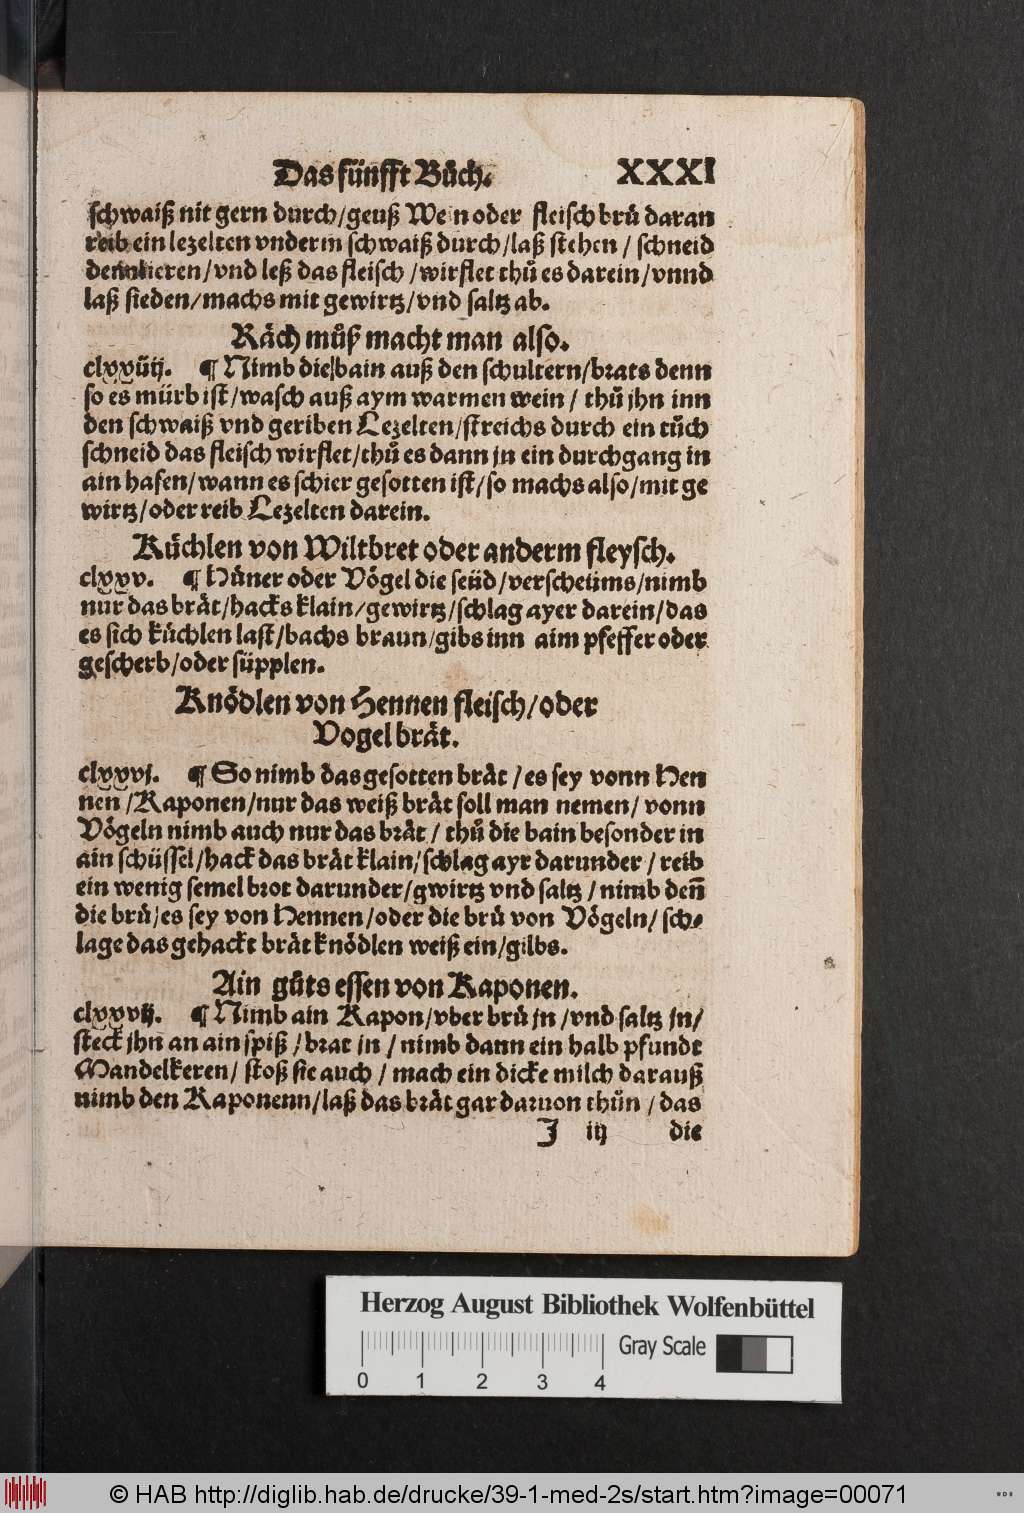 Das fünfft Bůch. XXXI
schwaiß nit gern durch/geuß Wein oder fleischbrů daran
reib ein lezelten vnderm schwaiß durch/laß stehen/ schneid
denn lieren/vnd leß das fleisch/wirflet thů es darein/vnnd
laß sieden/machs mit gewirtz/vnd saltz ab.
Räch můß macht man also.
clxxiiij. ¶ Nimb die bain auß den schultern/brats denn
so es mürb ist/wasch auß aym warmen wein/ thů jhn inn
den schwaiß vnd geriben Lezelten/streichs durch ein tůch
schneid das fleisch wirflet/thů es dann jn ein durchgang in
ain hafen/wann es schier gesotten ist/so machs also/mit ge
wirtz/oder reib Lezelten darein.
Küchlen von Wiltbret oder anderm fleysch.
clxxv. ¶ Hüner oder Vögel die seüd/verscheüms/nimb
nur das brät/hacks klain/gewirtz/schlag ayer darein/das
es sich küchlen last/bachs braun/gibs inn aim pfeffer oder
gescherb/oder süpplen.
Knödlen von Hennen fleisch/oder
Vogel brät.
clxxvj. ¶ So nimb das gesotten brät/es sey vonn Hen
nen/Kaponen/nur das weiß brät soll man nemen/ vonn
Vögeln nimb auch nur das brät/ thů die bain besonder in
ain schüssel/hack das brät klain/schlag ayr darunder/ reib
ein wenig semel brot darunder/gwirtz vnd saltz/ nimb deñ
die brů/es sey von Hennen/oder die brů von Vögeln/ sch⸗
lage das gehackt brät knödlen weiß ein/gilbs.
Ain gůts essen von Kaponen.
clxxvij. ¶ Nimb ain Kapon/vber brů jn/vnd saltz jn/
steck jhn an ain spiß/brat jn/ nimb dann ein halb pfundt
Mandelkeren/ stoß sie auch/ mach ein dicke milch darauß
nimb den Kaponenn/laß das brät gar daruon thůn/das
J iij die
Herzog August Bibliothek Wolfenbüttel
Gray Scale
0 1 2 3 4
© HAB http://diglib.hab.de/drucke/39-1-med-2s/start.htm?image=00071